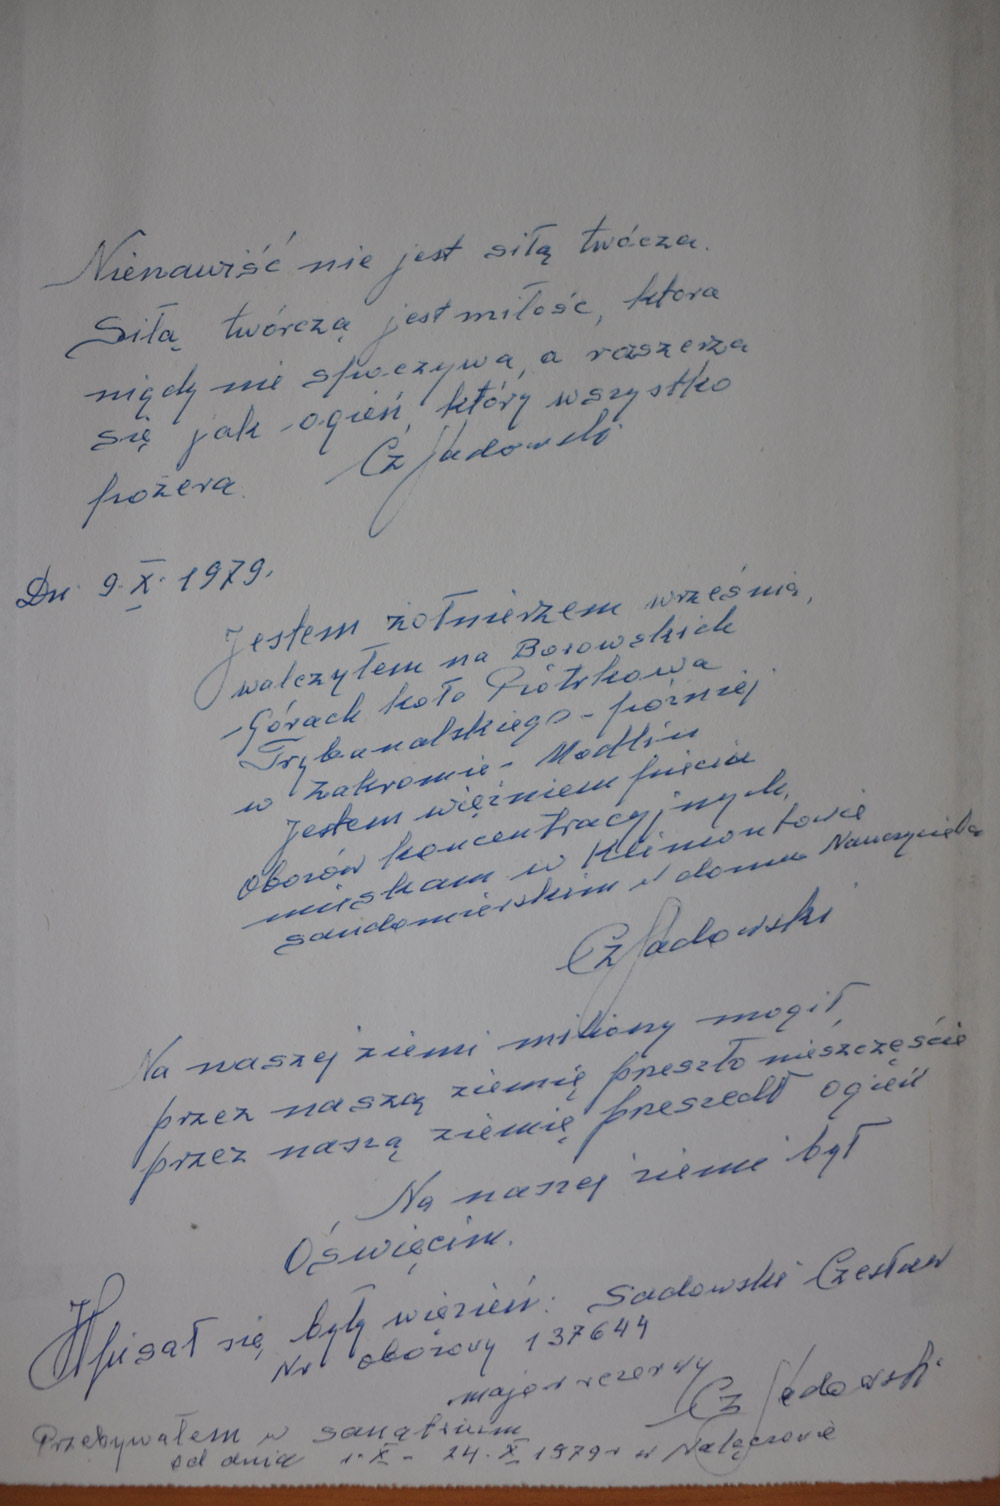 Nienawiść nie jest siłą twócza.
Siłą twórczą jest miłość, ktora
nigdy nie spoczywa, a rozszerza
się jak ogień, który wszystko
pożera. Cz Sadowski
Dn. 9.X.1979.
Jestem żołnierzem września,
walczyłem na Borowskich
Górach koło Piotrkowa
Trybunalskiego - później
w Zakromie - Modlin
Jestem więźniem pięciu
obozów koncentracyjnych,
mieskam w Klimontowie
sandomierskim w domu Nauczyciela
Cz Sadowski
Na naszej ziemi miliony mogił,
przez naszą ziemię przeszło nieszczęście
przez naszą ziemię przeszedł ogień
Na naszej ziemi był
Oświęcim.
Wpisał się były więzień: Sadowski Czesław
Nr obozowy 137644
major rezerwy
Cz Sadowski
Przebywałem w sanatrium
od dnia 1.X - 24.X 1979 r w Nałęczowie